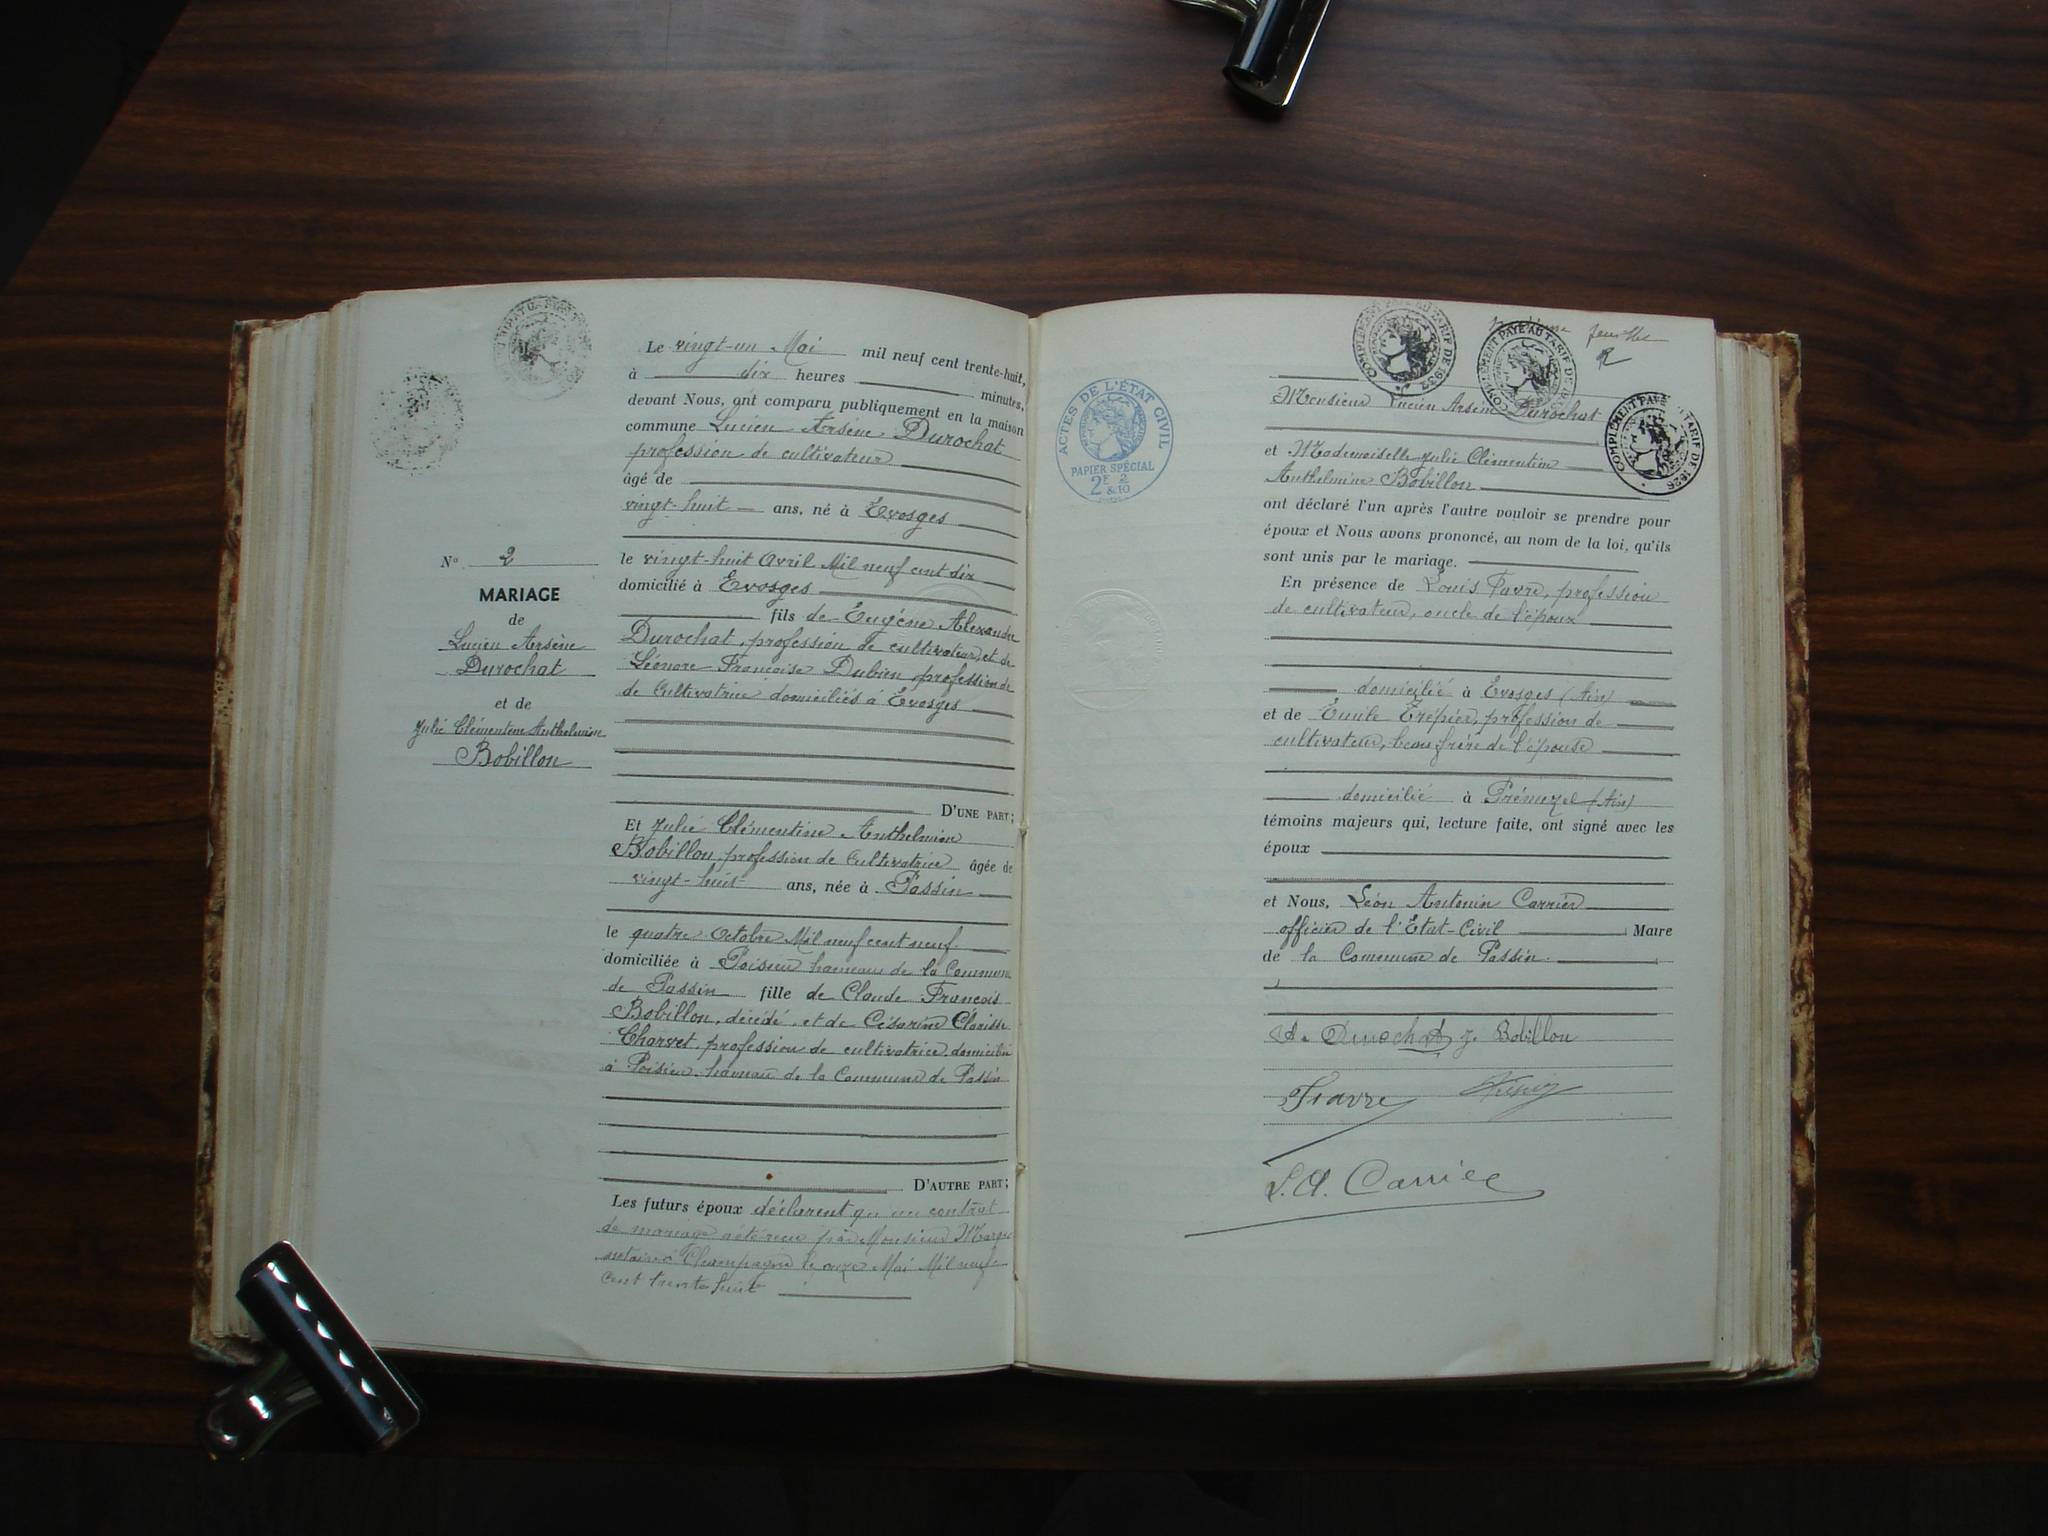 Le vingt-un Mai mil neuf cent trente-huit,
à dix heures minutes,
devant Nous, ont comparu publiquement en la maison
commune Lucien Arsène Durochat
profession de cultivateur
âgé de
vingt-huit ans, né à Evosges
le vingt-huit Avril Mil neuf cent dix
domicilié à Evosges
fils de Eugène Alexandre
Durochat, profession de cultivateur, et de
Léonore Françoise Dubien profession de
de Cultivatrice domiciliés à Evosges
D'UNE PART;
N° 2
MARIAGE
de
Lucien Arsène
Durochat
et de
Julie Clémentine Anthelmine
Bobillon
Et Julie Clémentine Anthelmine
Bobillon, profession de Cultivatrice âgée de
vingt-huit ans, née à Passin
le quatre Octobre Mil neuf cent neuf
domiciliée à Poisieu hameau de la Commune
de Passin fille de Claude François
Bobillon, décédé, et de Césarine Clarisse
Charvet, profession de cultivatrice, domiciliée
à Poisieu hameau de la Commune de Passin
D'AUTRE PART;
Les futurs époux déclarent qu'un contrat
de mariage a été reçu par Monsieur
notaire à Champagne le onze Mai Mil neuf
cent trente huit
ACTES DE L'ÉTAT CIVIL
PAPIER SPÉCIAL
2E 2
& 10
COMPLÉMENT PAYÉ AU TARIF DE 1937
COMPLÉMENT PAYÉ AU TARIF DE
COMPLÉMENT PAYÉ TARIF DE 1926
feuille
Monsieur Lucien Arsène Durochat
et Mademoiselle Julie Clémentine
Anthelmine Bobillon
ont déclaré l'un après l'autre vouloir se prendre pour
époux et Nous avons prononcé, au nom de la loi, qu'ils
sont unis par le mariage.
En présence de Louis Favre, profession
de cultivateur, oncle de l'époux
domicilié à Evosges (Ain)
et de Emile Trépier, profession de
cultivateur, beau-frère de l'épouse
domicilié à Prémeyzel (Ain)
témoins majeurs qui, lecture faite, ont signé avec les
époux
et Nous, Léon Antonin Carrier
officier de l'Etat-Civil Maire
de la Commune de Passin.
Durochat J. Bobillon
Favre Trépier
L. A. Carrier